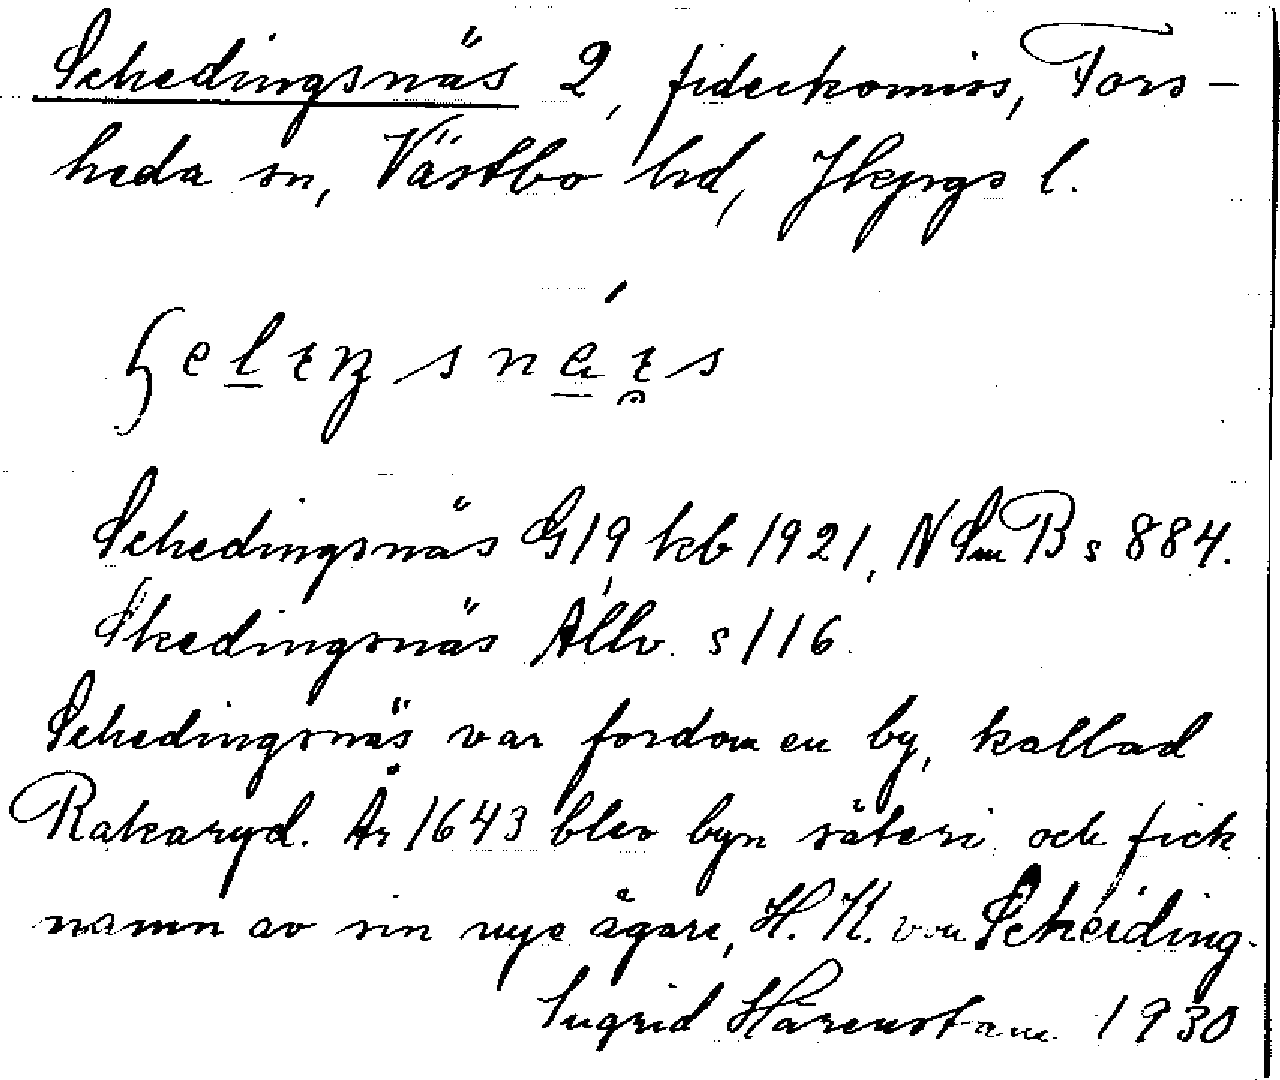 Schedingsnäs 2, fideikomiss, Fors-
heda sn, Västbo hd, Jkpgs l.
Schedingsnäs G19 kb 1921, N Sm B s 884.
Skedingsnäs Allv. s 116
Schedingsnäs var fordom en by, kallad
Rakaryd. År 1643 blev byn säteri och fick
namn av sin nye ägare, H. K. von Scheiding.
Ingrid Härenstam 1930